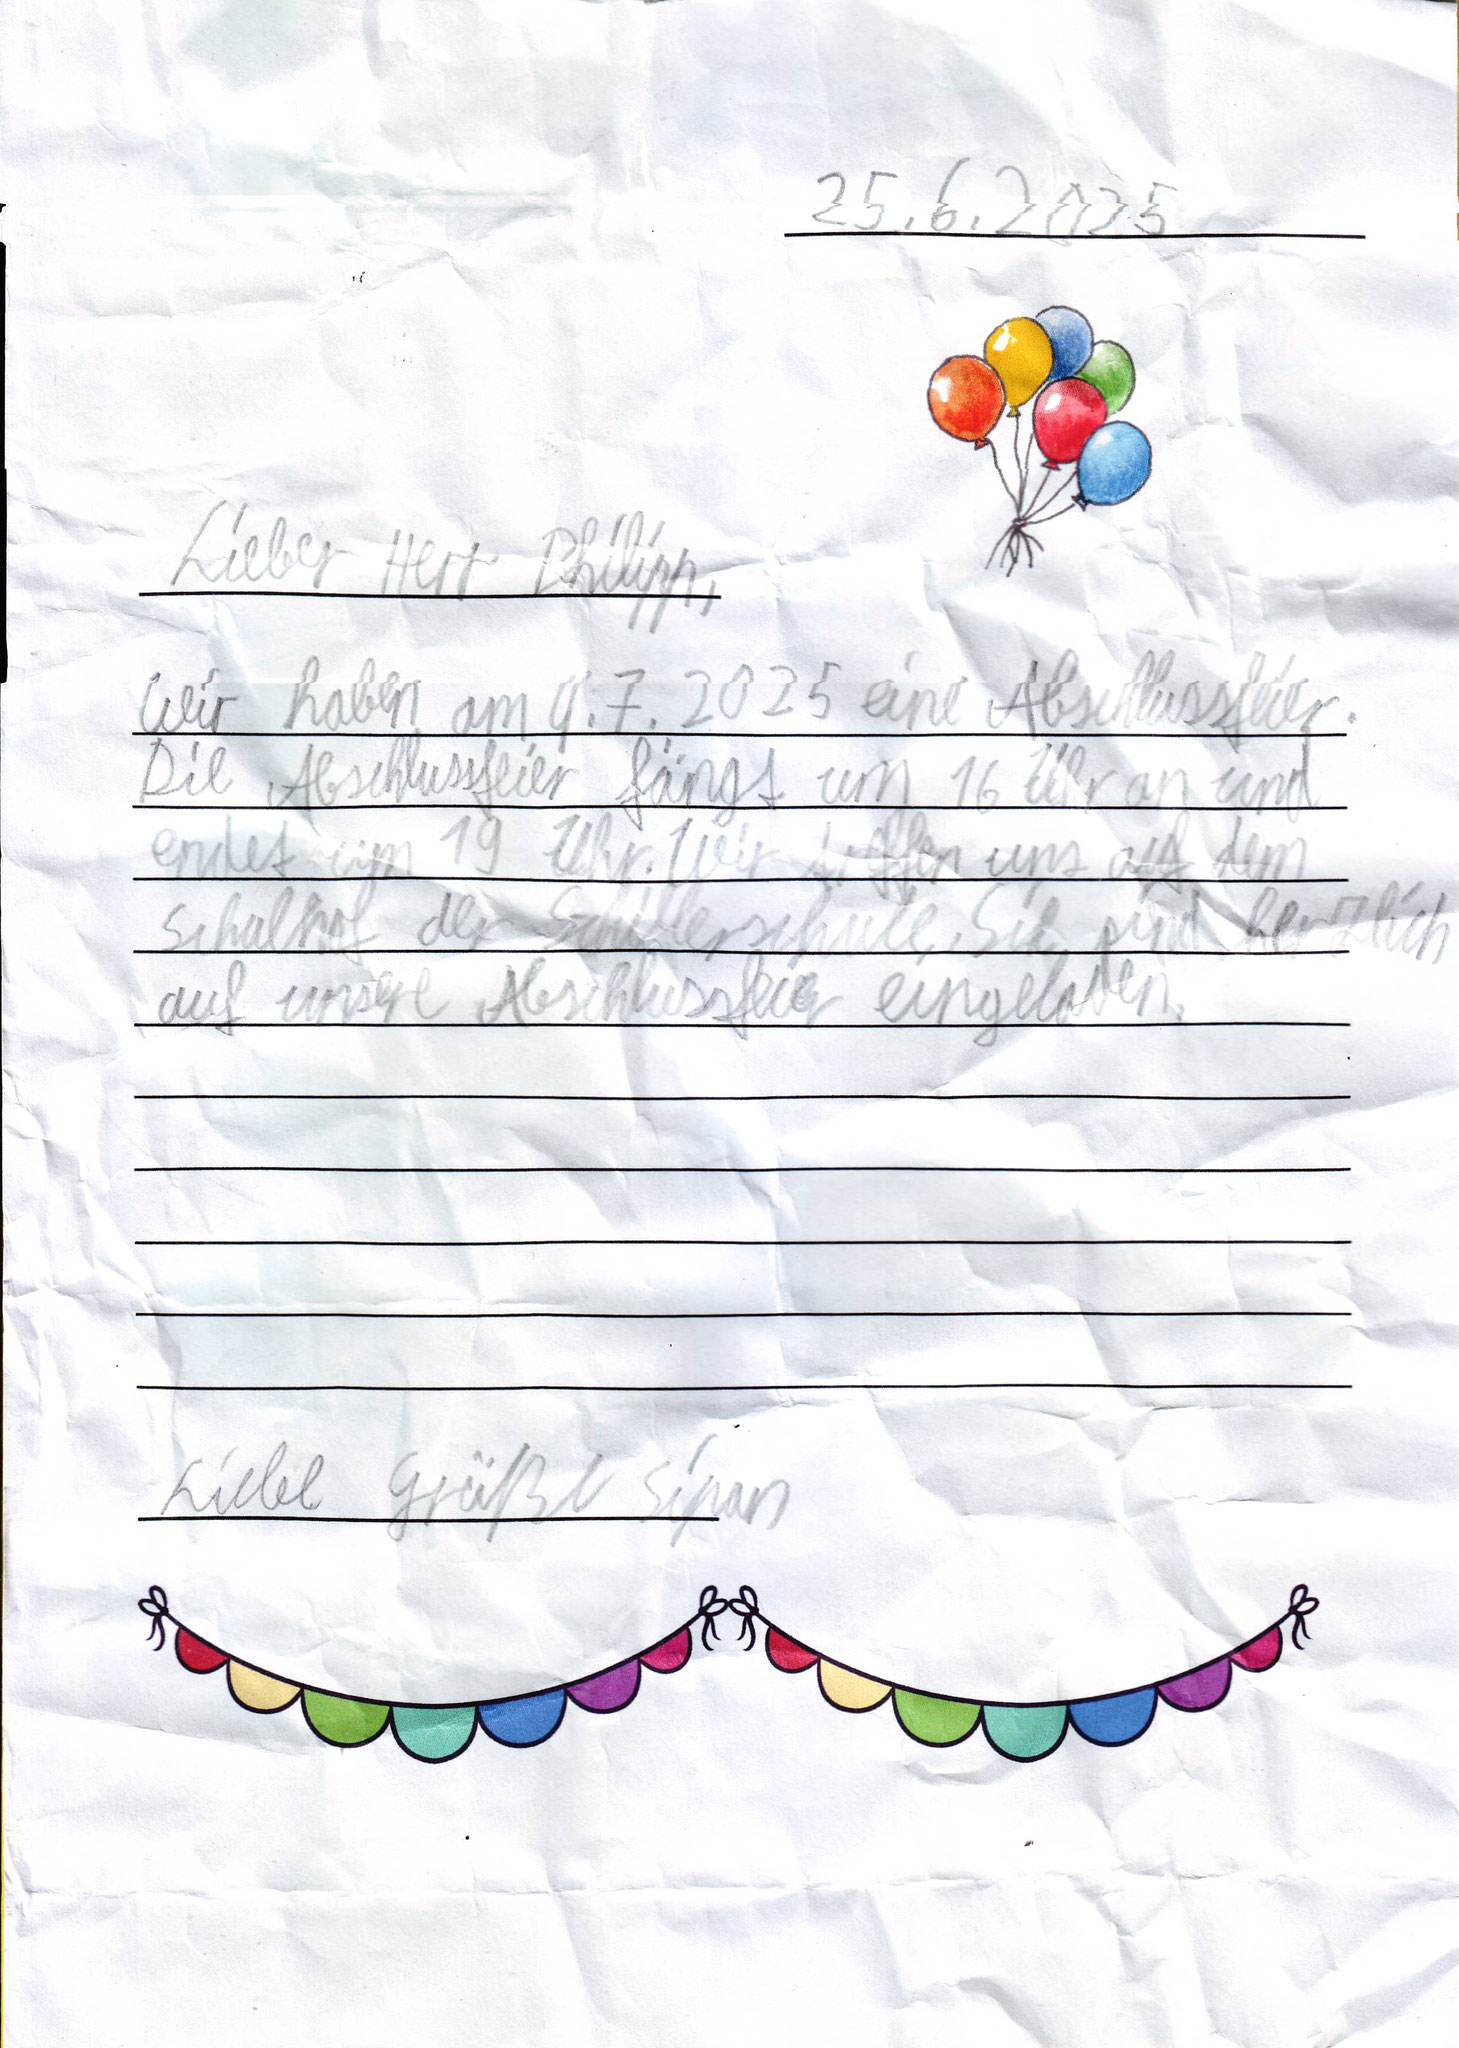 25.6.2025
Lieber Herr Philipp,
Wir haben am 4.7.2025 eine Abschlussfeier.
Die Abschlussfeier fängt um 16 Uhr an und
endet um 19 Uhr. Wir treffen uns auf dem
Schulhof der Schillerschule. Sie sind herzlich
auf unsere Abschlussfeier eingeladen.
Liebe Grüße Sipan